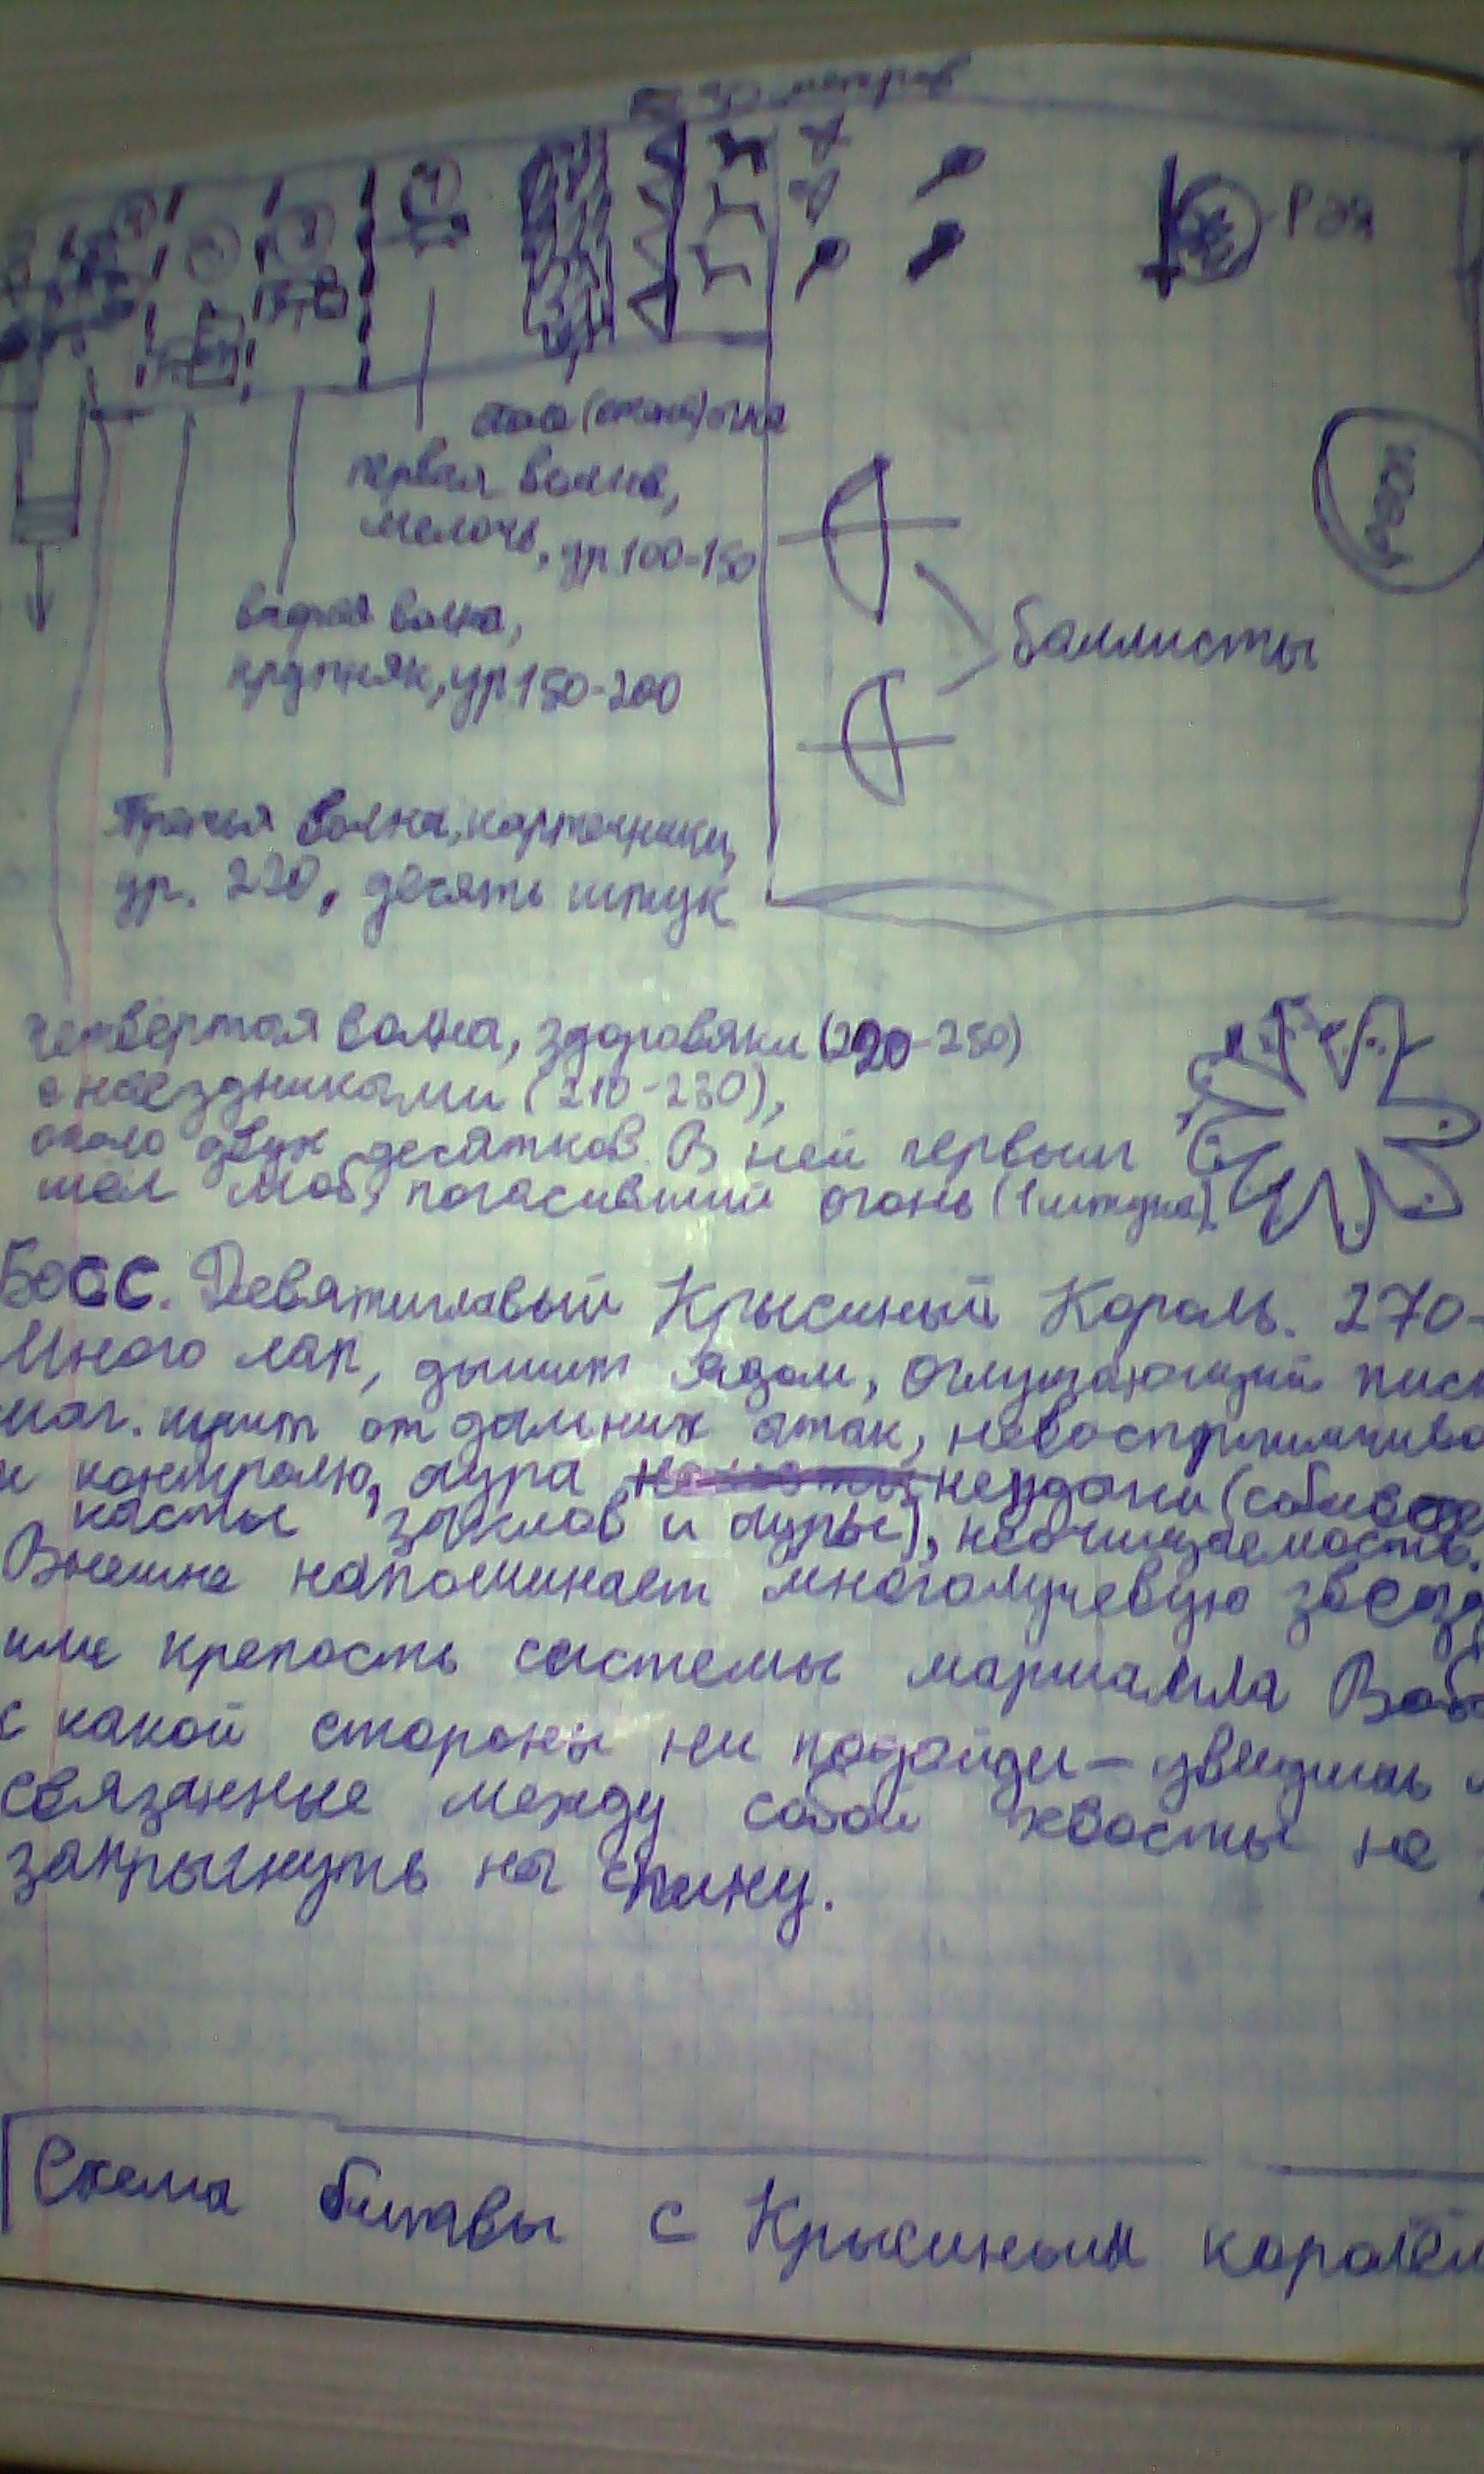 метров
Рэя
первая волна,
мелочь, ур 100-150
вторая волна,
крупняк, ур 150-200
баллисты
Третья волна, карточники,
ур. 220, десять штук
четвёртая волна, здоровяки (220-250)
с наездниками (210-230),
около двух десятков. В ней первым
шёл моб, погасивший огонь (1 штука)
Босс. Девятиглавый Крысиный Король. 270-
Много лап, дышит ядом, оглушающий писк
маг. щит от дальних атак, невосприимчиво
к контролю, аура неудачи
касты заклов и ауры), неочищаемость.
Внешне напоминает многолучевую звезд
или крепость системы маршалла Воб
с какой стороны ни подойди - увидишь
связанные между собой хвосты не
запрыгнуть на спину.
Схема битвы с Крысиным королём